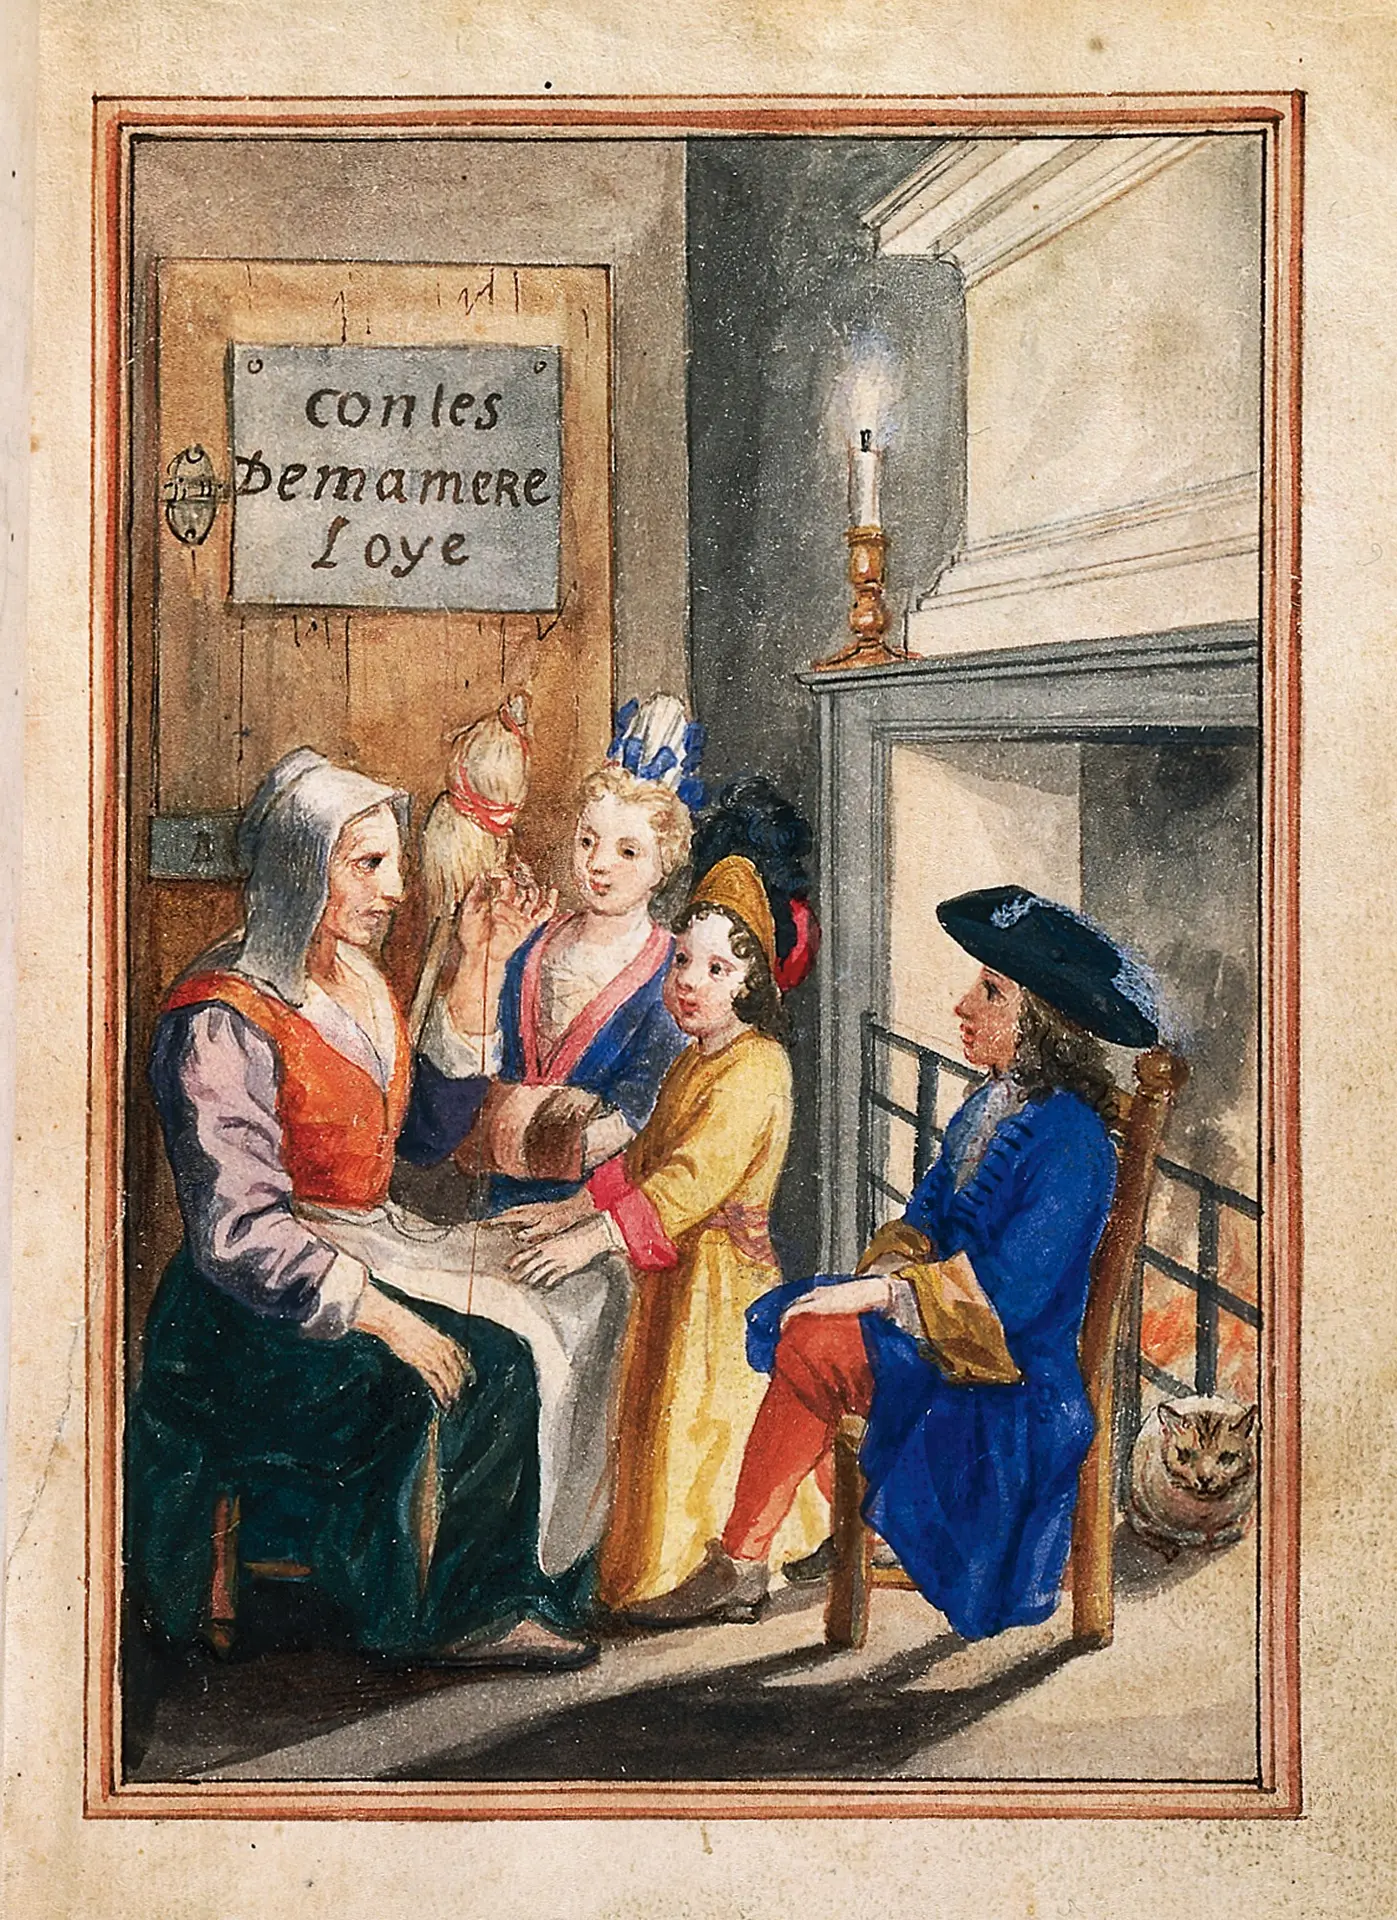 Contes
DemamERE
Loye